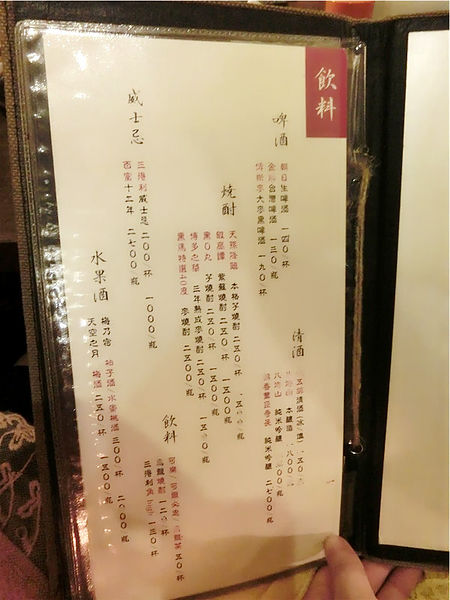 飲料
啤酒
朝日生啤酒 一四〇/杯
金牌台灣啤酒 一三〇/瓶
大麥黑啤酒 一九〇/杯
清酒
清酒
本釀造
純米吟釀
純米吟釀 二七〇〇/瓶
燒酎
天孫降臨 本格芋燒酎 二五〇/杯
紫蘇燒酎 二五〇/杯 一五〇〇/瓶
芋燒酎 二五〇/杯 一五〇〇/瓶
博多之 三年熟成麥燒酎 二五〇/杯 一五〇〇/瓶
黑馬特選40度 麥燒酎 二五〇〇/瓶
飲料
可樂/可爾必思/烏龍茶 五〇/杯
烏龍燒酎 一二〇/杯
三得利角high 一三〇/杯
威士忌
三得利威士忌 二〇〇/杯 一〇〇〇/瓶
百富十二年 二七〇〇/瓶
水果酒
梅乃宿 柚子酒 水蜜桃酒 三〇〇/杯 二〇〇〇/瓶
天空之月 梅酒 二五〇/杯 一五〇〇/瓶